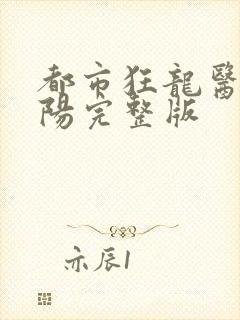 都市狂龍醫
陽完整版
亦辰1